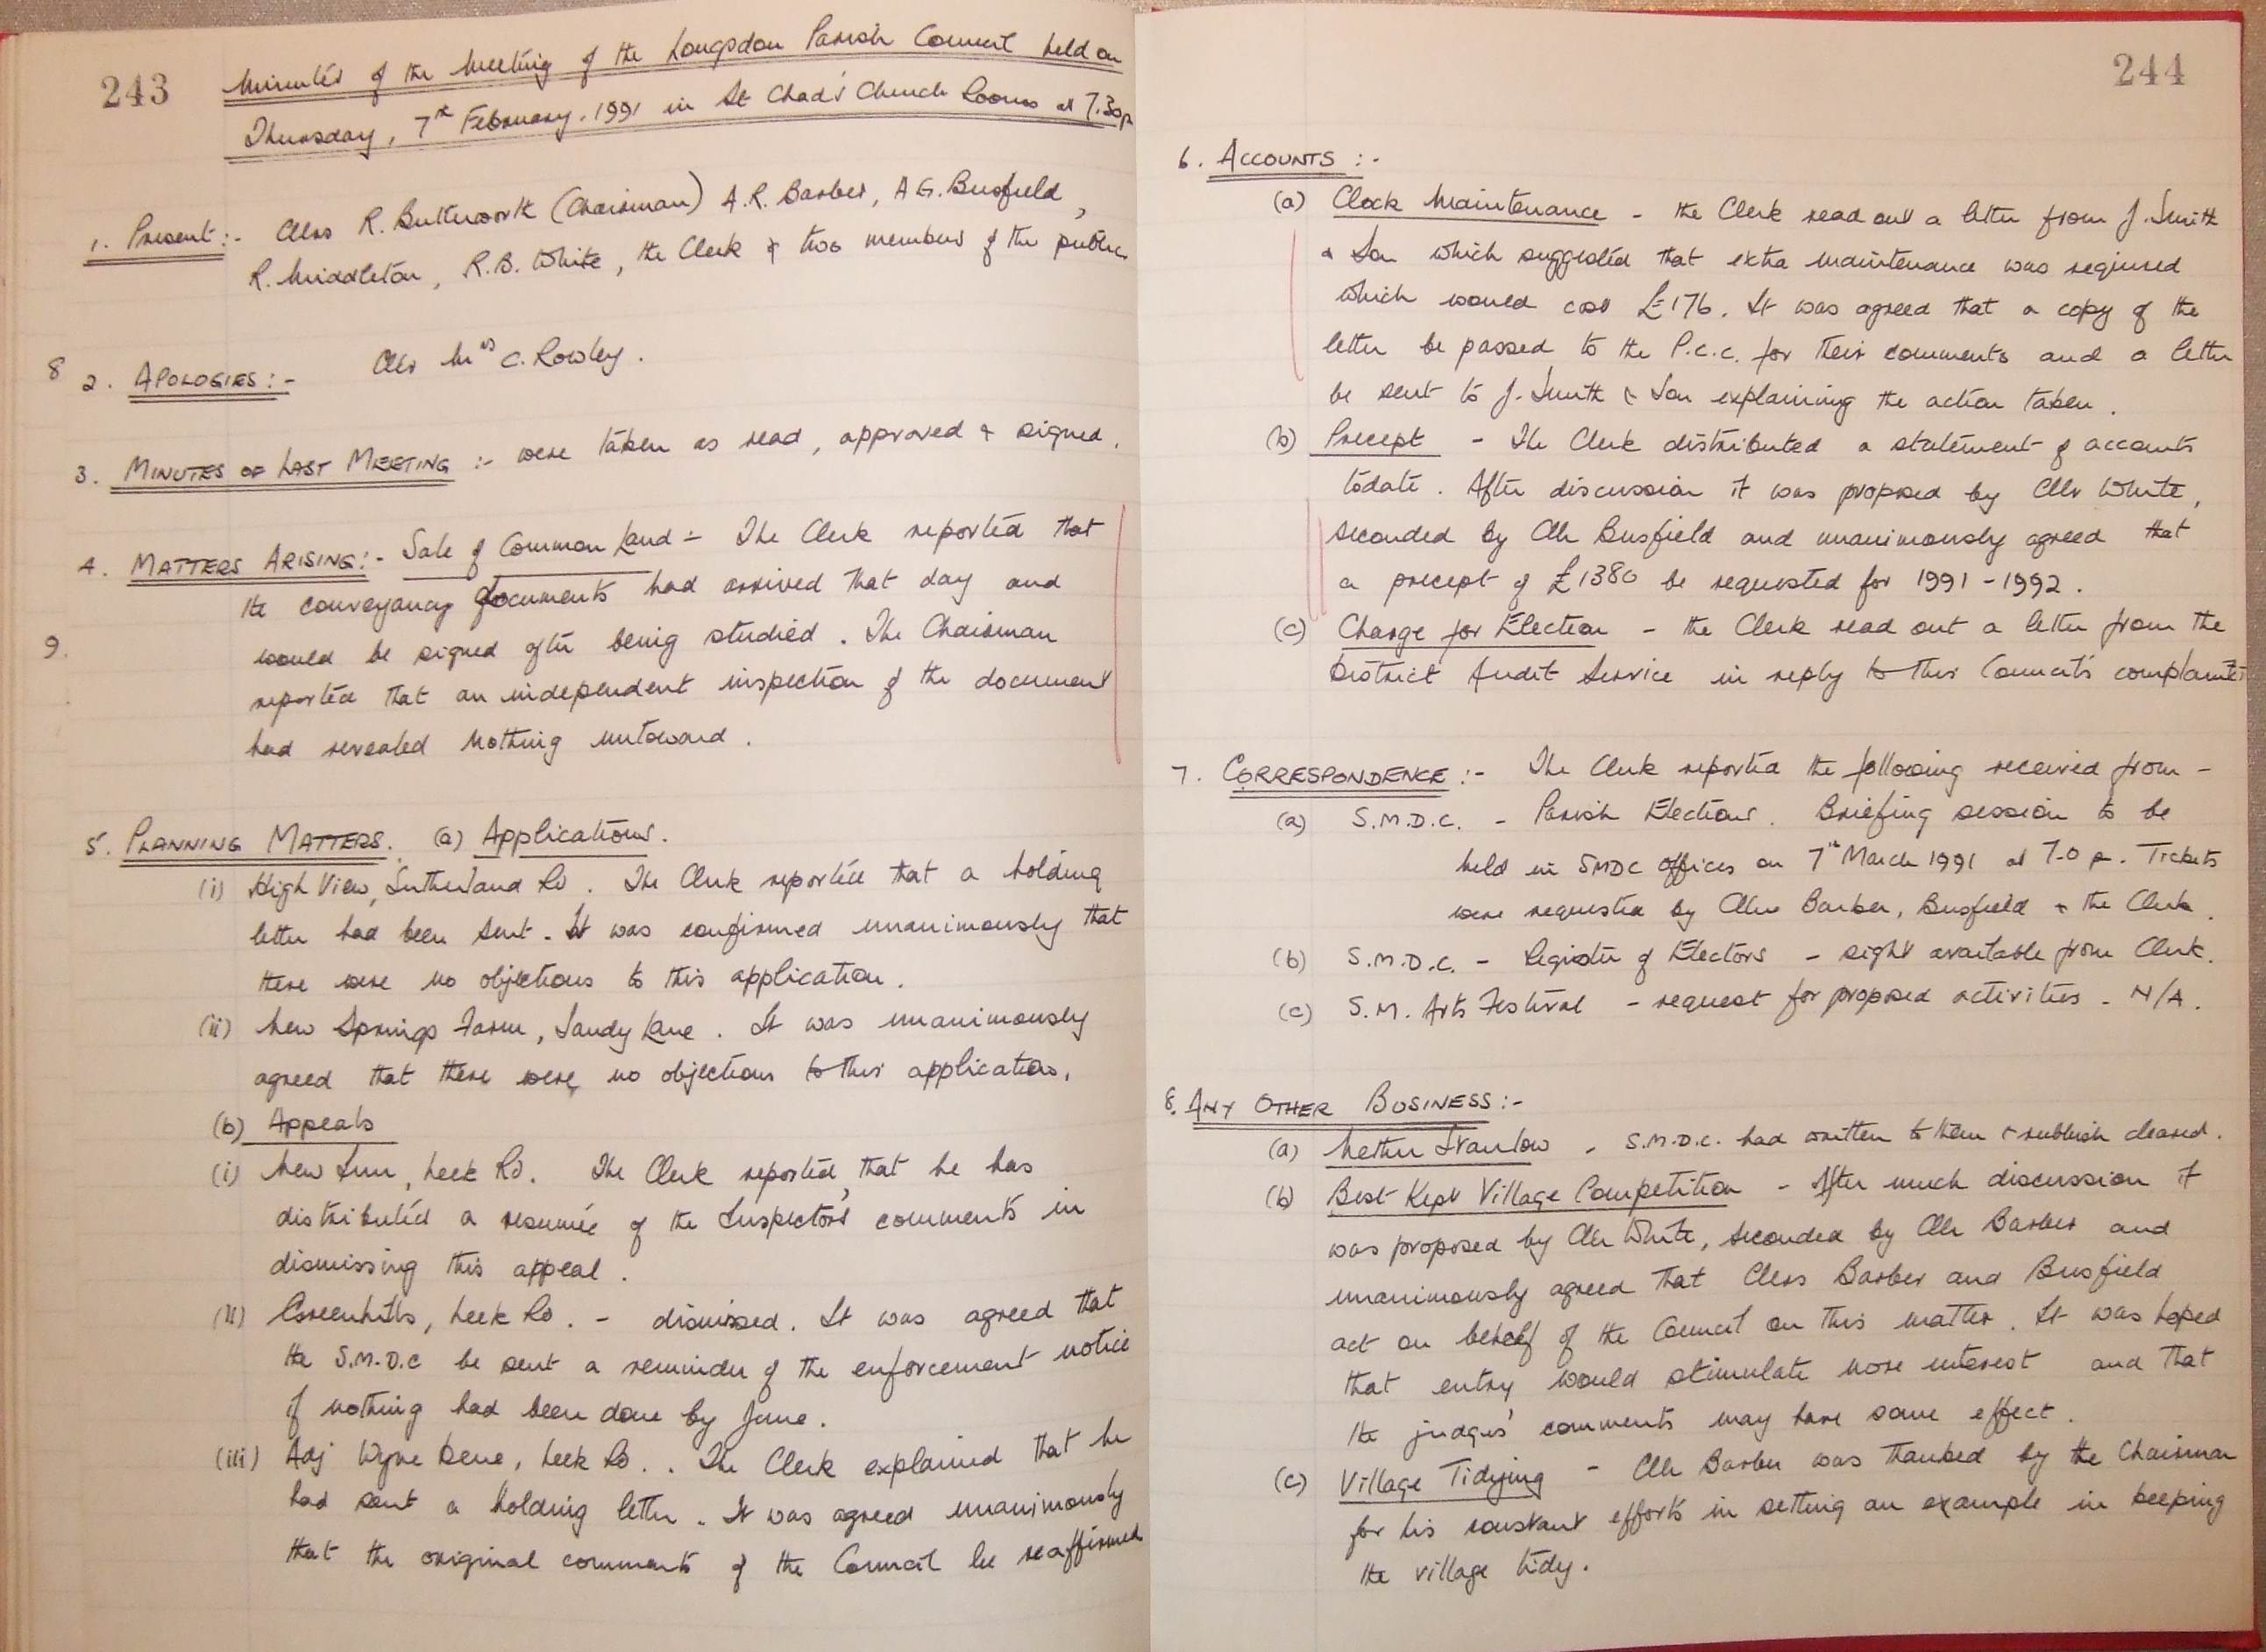 243
Minutes of the Meeting of the Longsdon Parish Council held on
Thursday, 7th February, 1991 in St Chad's Church Rooms at 7.30p
1. Present :- Cllrs R. Butterworth (Chairman) A.R. Barber, A G. Busfield,
R. Middleton, R.B. White, the Clerk & two members of the public
8
2. APOLOGIES :- Cllr Mrs C. Rowley.
3. MINUTES OF LAST MEETING :- were taken as read, approved & signed.
4. MATTERS ARISING :- Sale of Common Land - The Clerk reported that
the conveyancy documents had arrived that day and
9.
would be signed after being studied. The Chairman
reported that an independent inspection of the document
had revealed nothing untoward.
5. PLANNING MATTERS. (a) Applications.
(i) High View, Sutherland Rd. The Clerk reported that a holding
letter had been sent. It was confirmed unanimously that
there were no objections to this application.
(ii) New Springs Farm, Sandy Lane. It was unanimously
agreed that there were no objections to this application.
(b) Appeals
(i) New Inn, Leek Rd. The Clerk reported that he has
distributed a resumée of the Inspectors' comments in
dismissing this appeal.
(ii) Greenhills, Leek Rd. - dismissed. It was agreed that
the S.M.D.C be sent a reminder of the enforcement notice
if nothing had been done by June.
(iii) Adj Wyne Dene, Leek Rd.. The Clerk explained that he
had sent a holding letter. It was agreed unanimously
that the original comments of the Council be reaffirmed
244
6. ACCOUNTS :-
(a) Clock Maintenance - the Clerk read out a letter from J. Smith
& Son which suggested that extra maintenance was required
which would cost £176. It was agreed that a copy of the
letter be passed to the P.C.C. for their comments and a letter
be sent to J. Smith & Son explaining the action taken.
(b) Precept - The Clerk distributed a statement of accounts
todate. After discussion it was proposed by Cllr White,
seconded by Cllr Busfield and unanimously agreed that
a precept of £1380 be requested for 1991-1992.
(c) Charge for Election - the Clerk read out a letter from the
District Audit Service in reply to this Council's complaints
7. CORRESPONDENCE :- The Clerk reported the following received from -
(a) S.M.D.C. - Parish Elections. Briefing session to be
held in SMDC offices on 7th March 1991 at 7.0 p. Tickets
were requested by Cllrs Barber, Busfield & the Clerk.
(b) S.M.D.C. - Register of Electors - sight available from Clerk.
(c) S.M. Arts Festival - request for proposed activities - N/A.
8. ANY OTHER BUSINESS :-
(a) Nether Stanlow - S.M.D.C. had written to them & rubbish cleared.
(b) Best Kept Village Competition - After much discussion it
was proposed by Cllr White, seconded by Cllr Barber and
unanimously agreed that Cllrs Barber and Busfield
act on behalf of the Council on this matter. It was hoped
that entry would stimulate more interest and that
the judges' comments may have some effect.
(c) Village Tidying - Cllr Barber was thanked by the Chairman
for his constant efforts in setting an example in keeping
the village tidy.